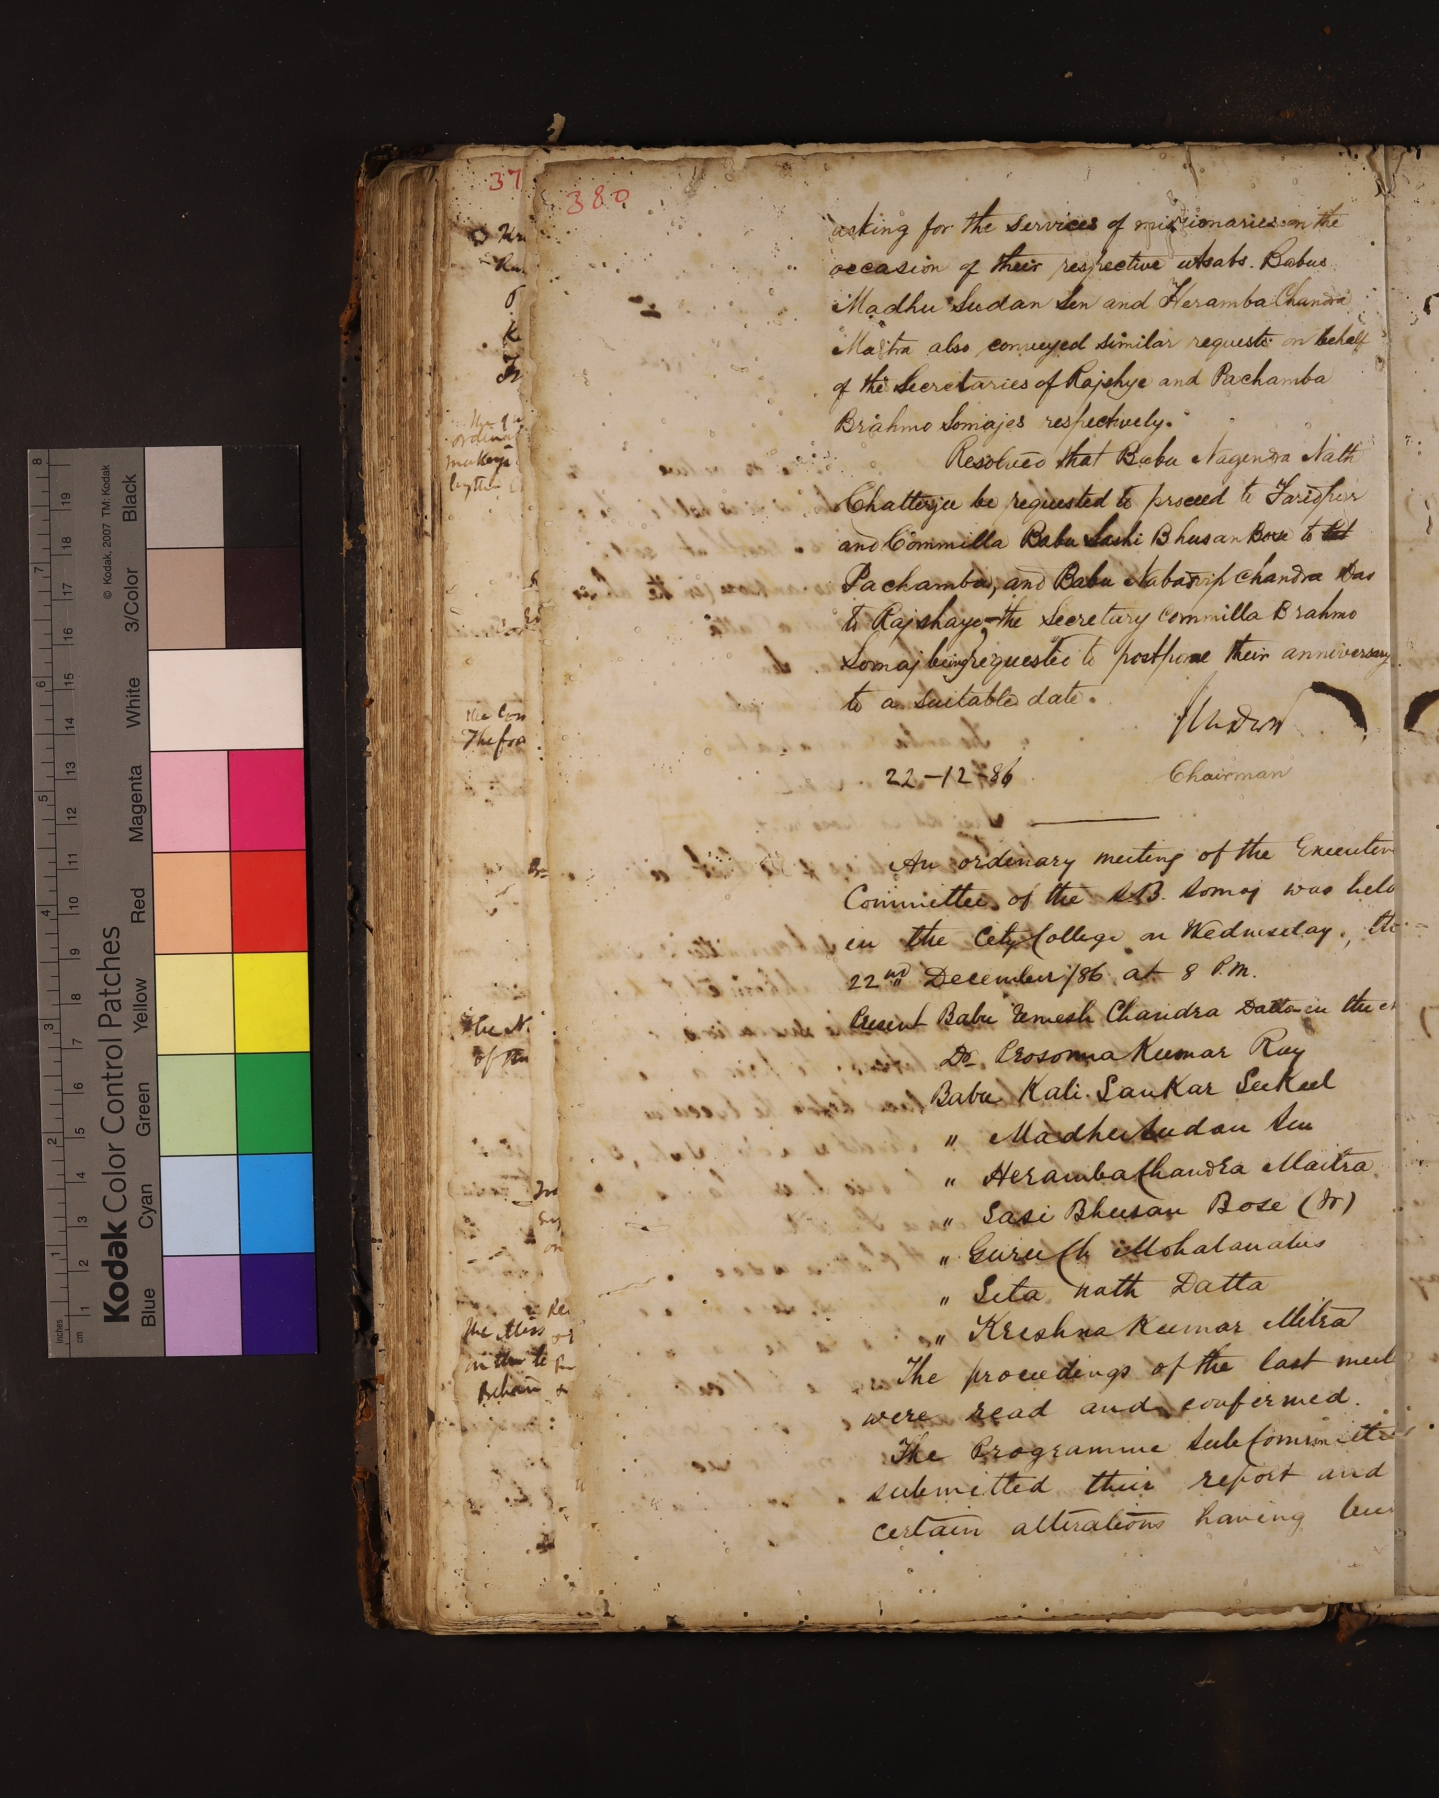 380
asking for the services of missionaries on the
occasion of their respective utsabs. Babus
Madhu Sudan Sen and Heramba Chandra
Maitra also conveyed similar requests on behalf
of the Secretaries of Rajshye and Pachamba
Brahmo Somajes respectively.
Resolved that Babu Nagendra Nath
Chatterjee be requested to proceed to Faridpur
and Commilla Babu Sashi Bhusan Bose to
Pachamba, and Babu Nabadvip Chandra Das
to Rajshaye, the Secretary Commilla Brahmo
Somaj being requested to postpone their anniversary
to a suitable date.
22-12-86
Chairman
An ordinary meeting of the Executive
Committee of the S.B. Somaj was held
in the City College on Wednesday, the
22nd December/86 at 8 P.M.
Present Babu Umesh Chandra Datta in the
Dr Prosonna Kumar Ray
Babu Kali Sankar Sukul
" Madhu Sudan Sen
" Heramba Chandra Maitra
" Sasi Bhusan Bose (Jr)
" Guru Ch Mohalanabis
" Sita nath Datta
" Krishna Kumar Mitra
The proceedings of the last meet
were read and confirmed.
The Programme Sub Committee
submitted their report and
certain alterations having
37
Kodak Color Control Patches
© Kodak, 2007 TM: Kodak
Blue Cyan Green Yellow Red Magenta White 3/Color Black
inches 1 2 3 4 5 6 7 8
cm 1 2 3 4 5 6 7 8 9 10 11 12 13 14 15 16 17 18 19